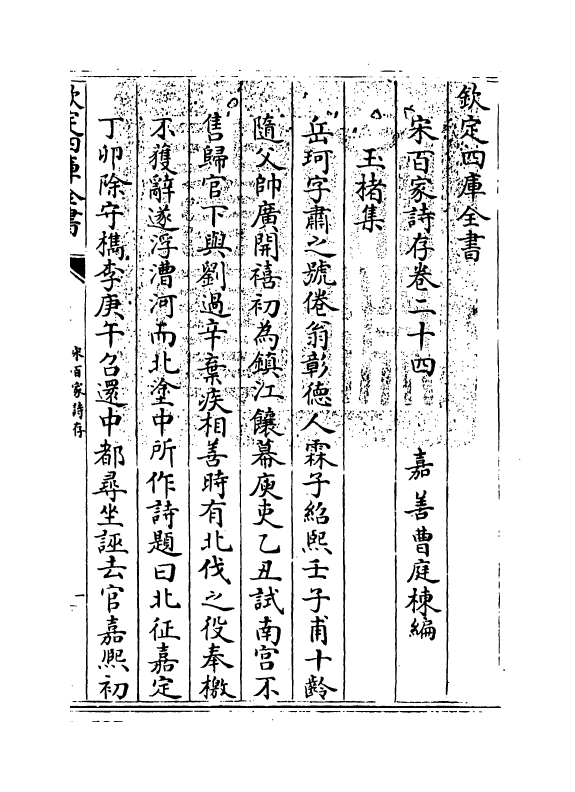 欽定四庫全書
宋百家詩存卷二十四　嘉善曹庭棟編
玉楮集
岳珂字肅之號倦翁彰德人霖子紹熙壬子甫十齡
隨父帥廣開禧初為鎮江饟幕庾吏乙丑試南宮不
售歸官下與劉過辛棄疾相善時有北伐之役奉檄
不獲辭遂浮漕河而北塗中所作詩題曰北征嘉定
丁卯除守檇李庚午召還中都尋坐誣去官嘉熙初
欽定四庫全書
宋百家詩存
一